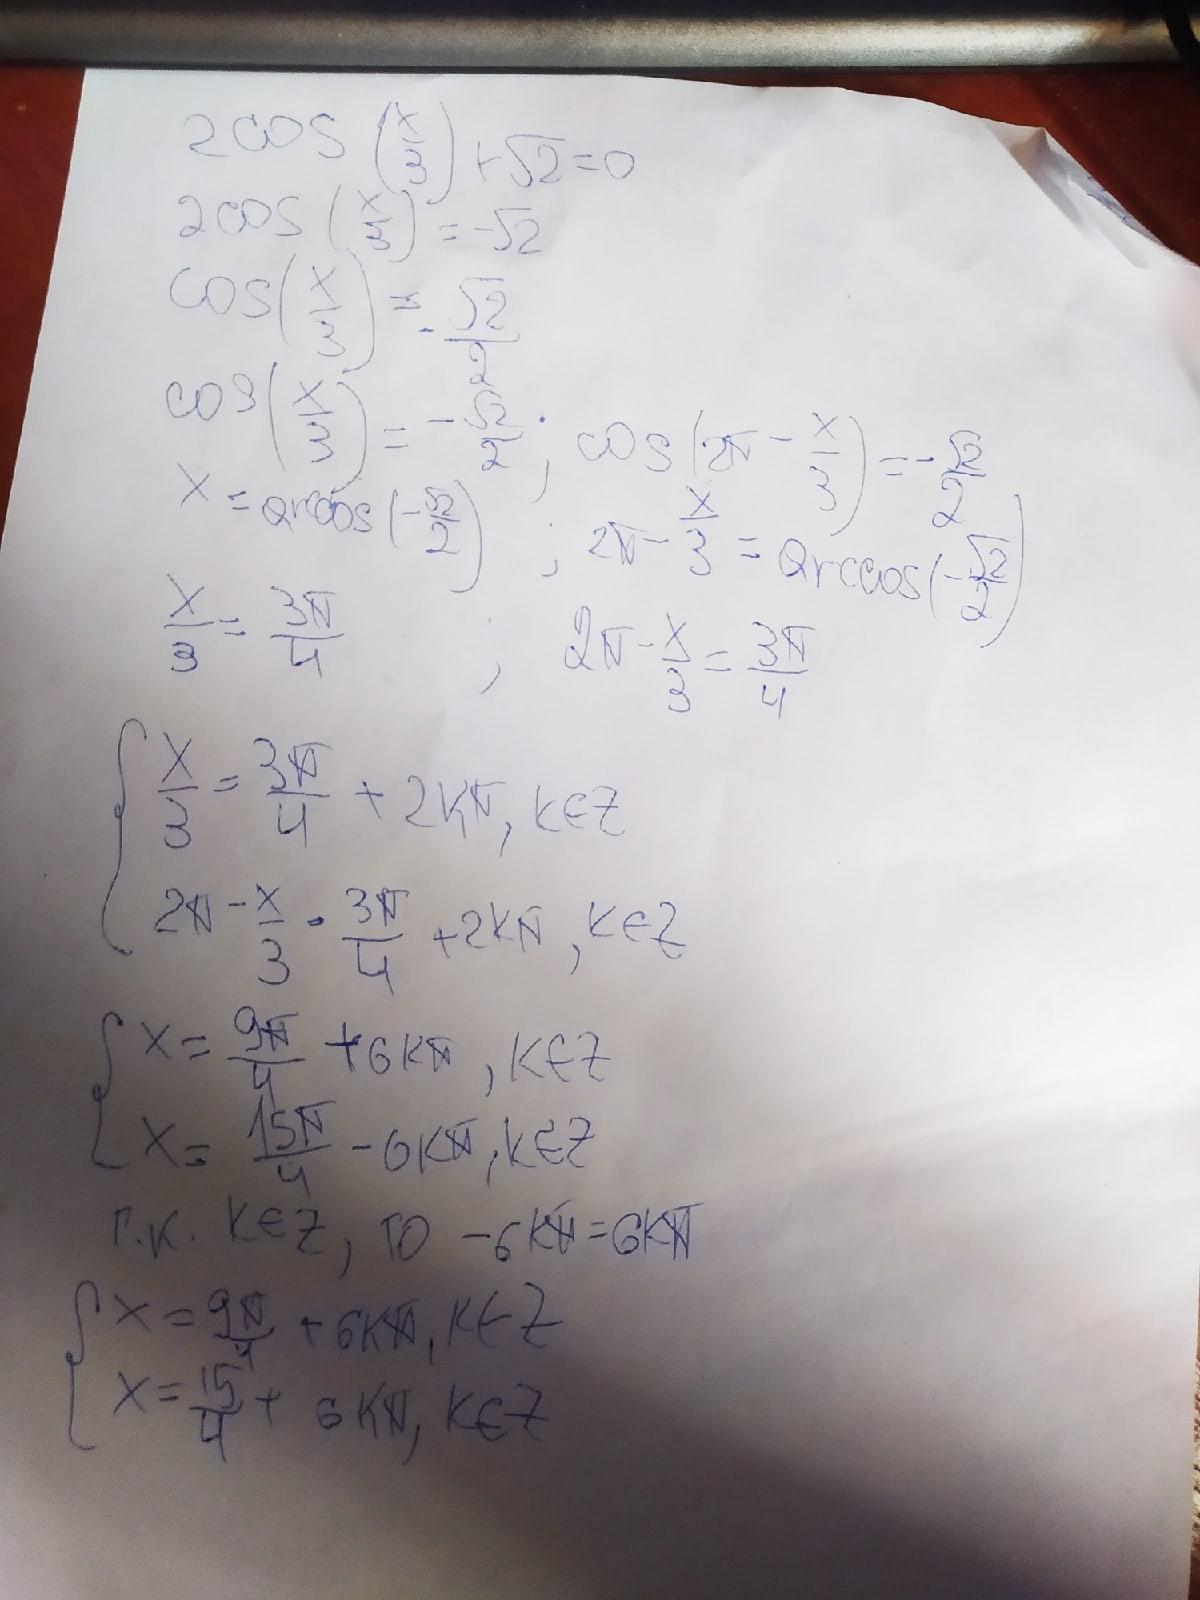 2cos (x/3) + √2 = 0
2cos (x/3) = -√2
cos (x/3) = -√2/2
cos (x/3) = -√2/2 ; cos (2π - x/3) = -√2/2
x = arccos (-√2/2) ; 2π - x/3 = arccos (-√2/2)
x/3 = 3π/4 ; 2π - x/3 = 3π/4
{ x/3 = 3π/4 + 2kπ, k∈Z
2π - x/3 = 3π/4 + 2kπ, k∈Z
{ x = 9π/4 + 6kπ, k∈Z
x = 15π/4 - 6kπ, k∈Z
т.к. k∈Z, то -6kπ = 6kπ
{ x = 9π/4 + 6kπ, k∈Z
x = 15/4 + 6kπ, k∈Z